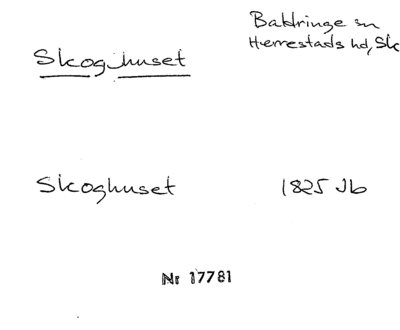 Skoghuset
Baldringe sn
Herrestads hd, Sk
Skoghuset
1825 Jb
Nr 17781